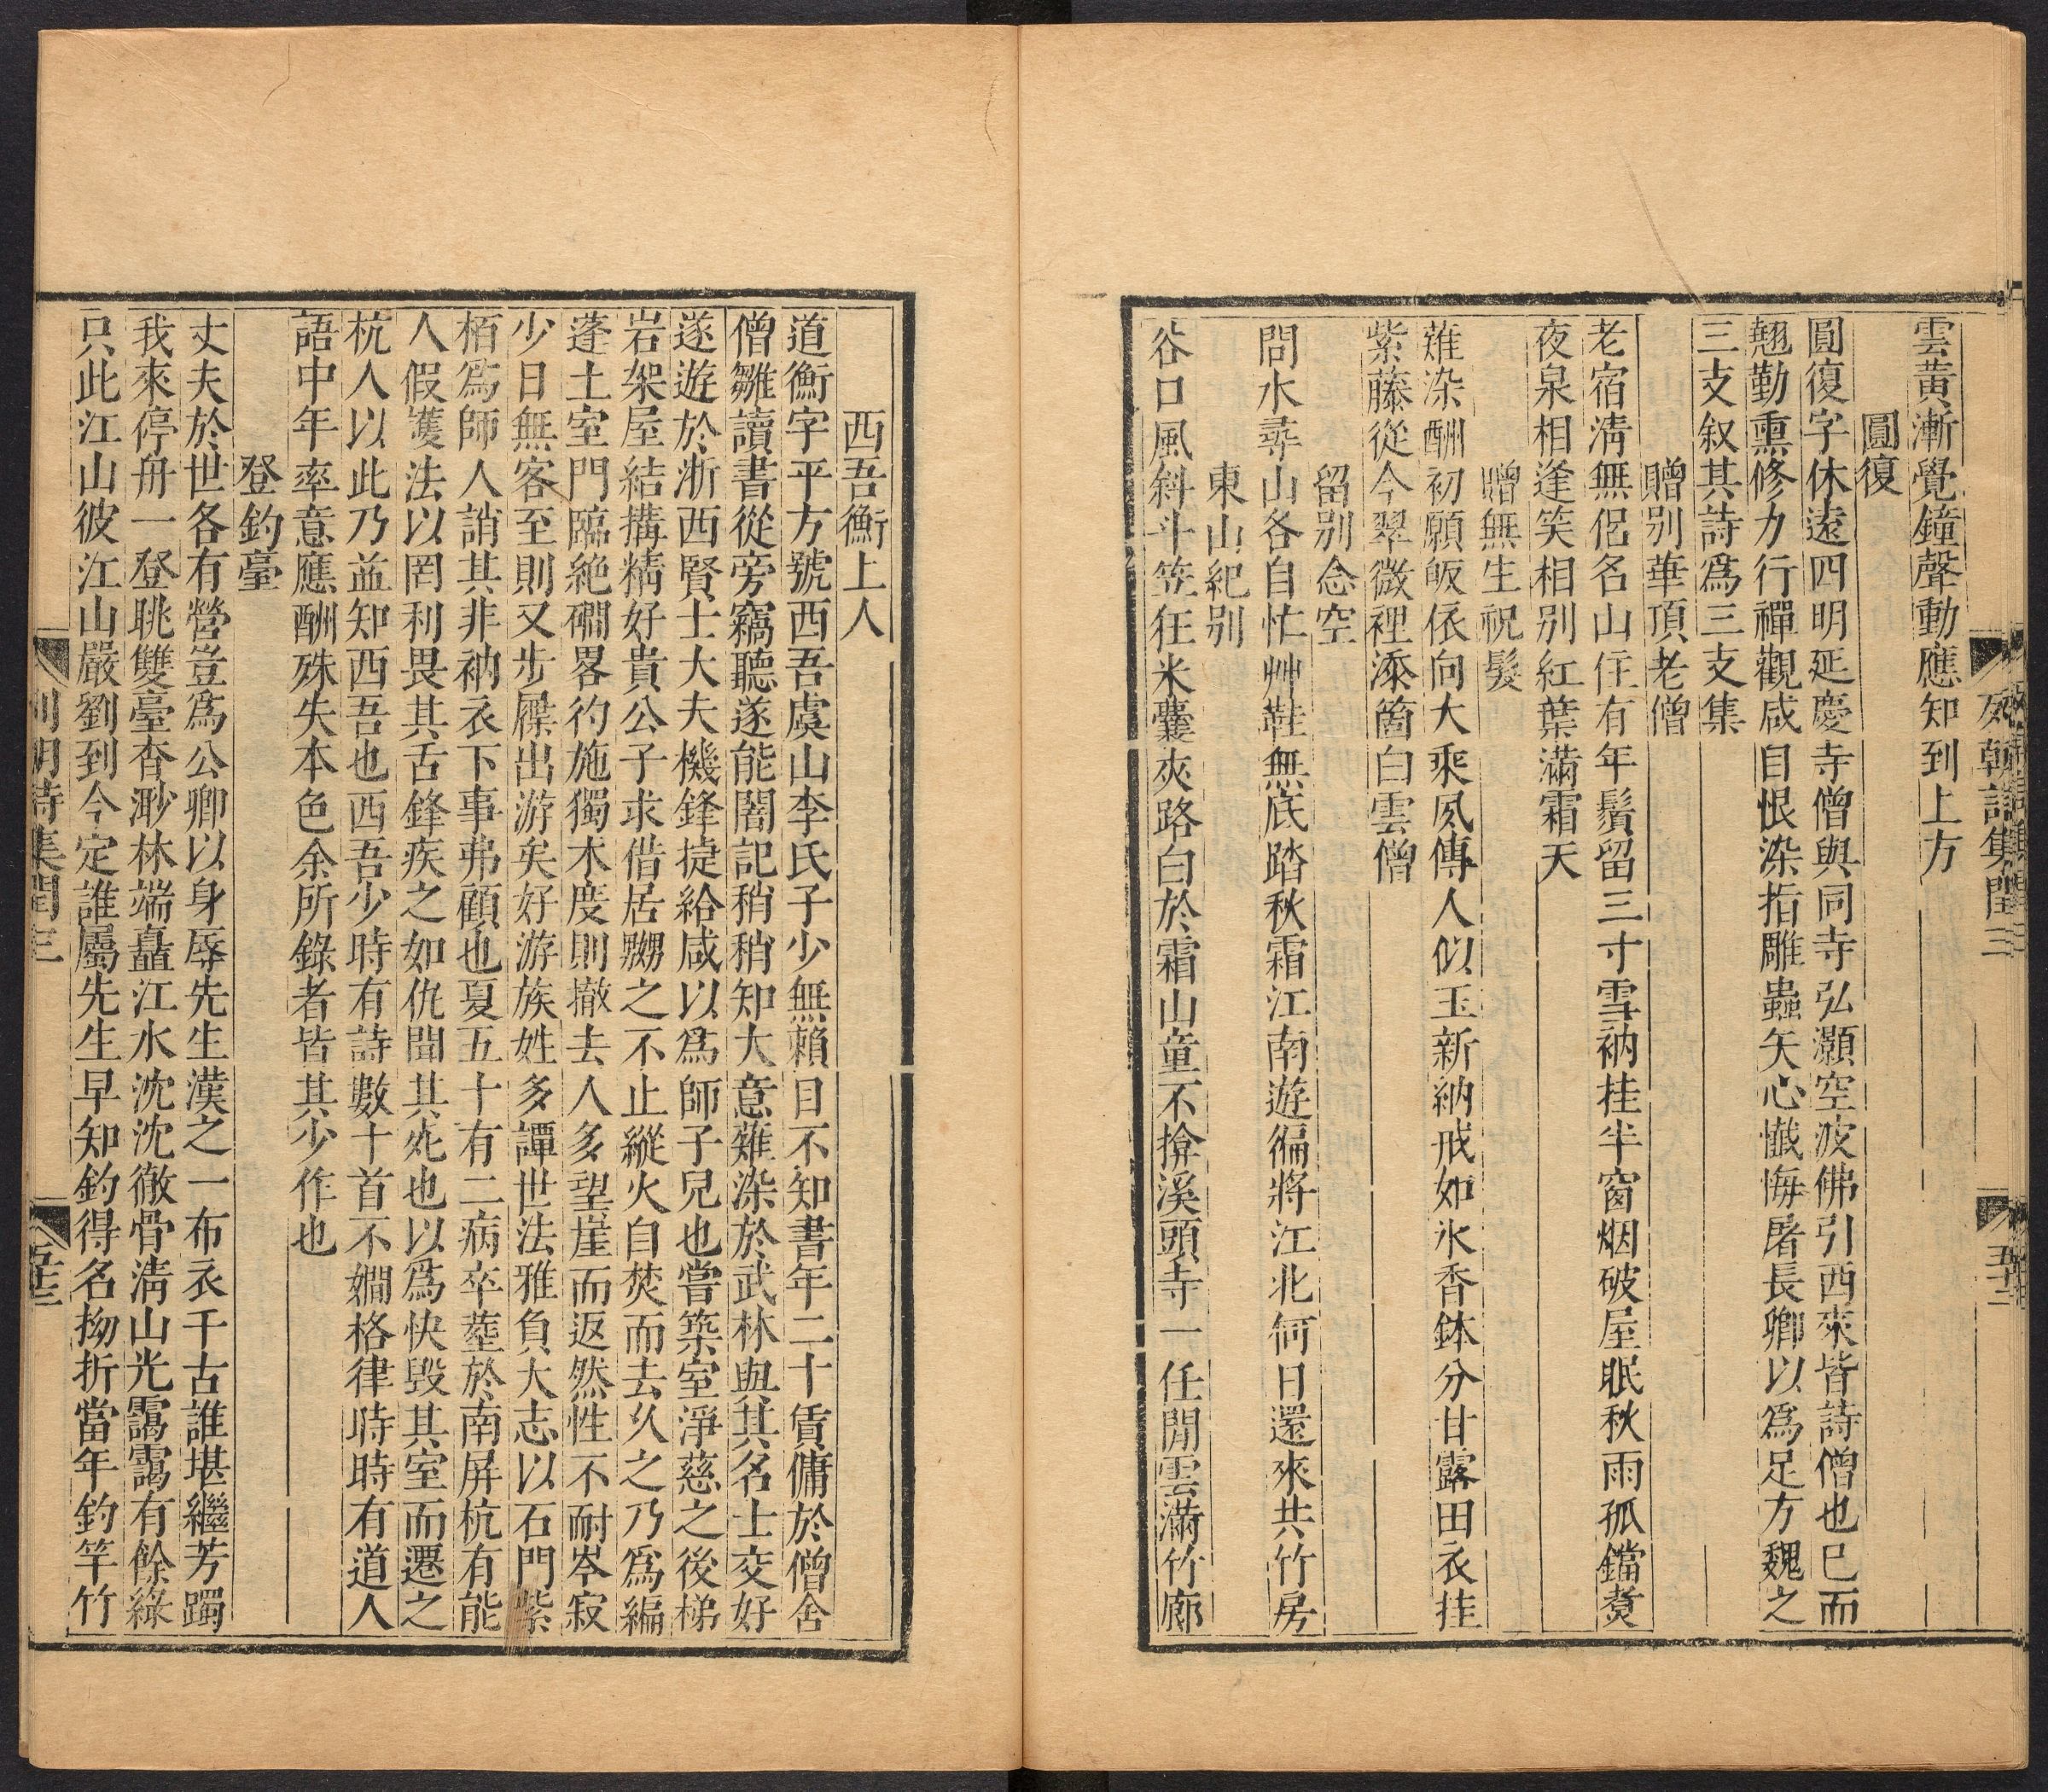 列朝詩集閏三
五十三
雲黃漸覺鐘聲動應知到上方
圓復
圓復字休遠四明延慶寺僧與同寺弘灝空波佛引西來皆詩僧也已而
翹勤熏修力行禪觀咸自恨染指雕蟲矢心懺悔屠長卿以爲足方魏之
三支叙其詩爲三支集
贈別華頂老僧
老宿淸無侶名山住有年鬚留三寸雪衲挂半窗烟破屋眠秋雨孤鐺煑
夜泉相逢笑相別紅葉滿霜天
贈無生祝髮
薙染酬初願皈依向大乘夙傳人似玉新納戒如氷香鉢分甘露田衣挂
紫藤從今翠微裡添箇白雲僧
留別念空
問水尋山各自忙艸鞋無底踏秋霜江南遊徧將江北何日還來共竹房
東山紀別
谷口風斜斗笠狂米囊夾路白於霜山童不揜溪頭寺一任閒雲滿竹廊
西吾衡上人
道衡字平方號西吾虞山李氏子少無賴目不知書年二十賃傭於僧舍
僧雛讀書從旁竊聽遂能闇記稍稍知大意薙染於武林與其名士交好
遂遊於浙西賢士大夫機鋒㨗給咸以爲師子兒也嘗築室淨慈之後梯
岩架屋結搆精好貴公子求借居嬲之不止縱火自焚而去久之乃爲編
蓬土室門臨絶磵畧彴施獨木度則撤去人多望崖而返然性不耐岑寂
少日無客至則又步屧出游矣好游族姓多譚世法雅負大志以石門紫
栢爲師人誚其非衲衣下事弗顧也夏五十有二病卒塟於南屏杭有能
人假護法以罔利畏其舌鋒疾之如仇聞其死也以爲快毀其室而遷之
杭人以此乃益知西吾也西吾少時有詩數十首不嫺格律時時有道人
語中年率意應酬殊失本色余所錄者皆其少作也
登釣臺
丈夫於世各有營豈爲公卿以身辱先生漢之一布衣千古誰堪繼芳躅
我來停舟一登眺雙臺杳渺林端矗江水沈沈徹骨淸山光靄靄有餘綠
只此江山彼江山嚴劉到今定誰屬先生早知釣得名拗折當年釣竿竹
列朝詩集閏三